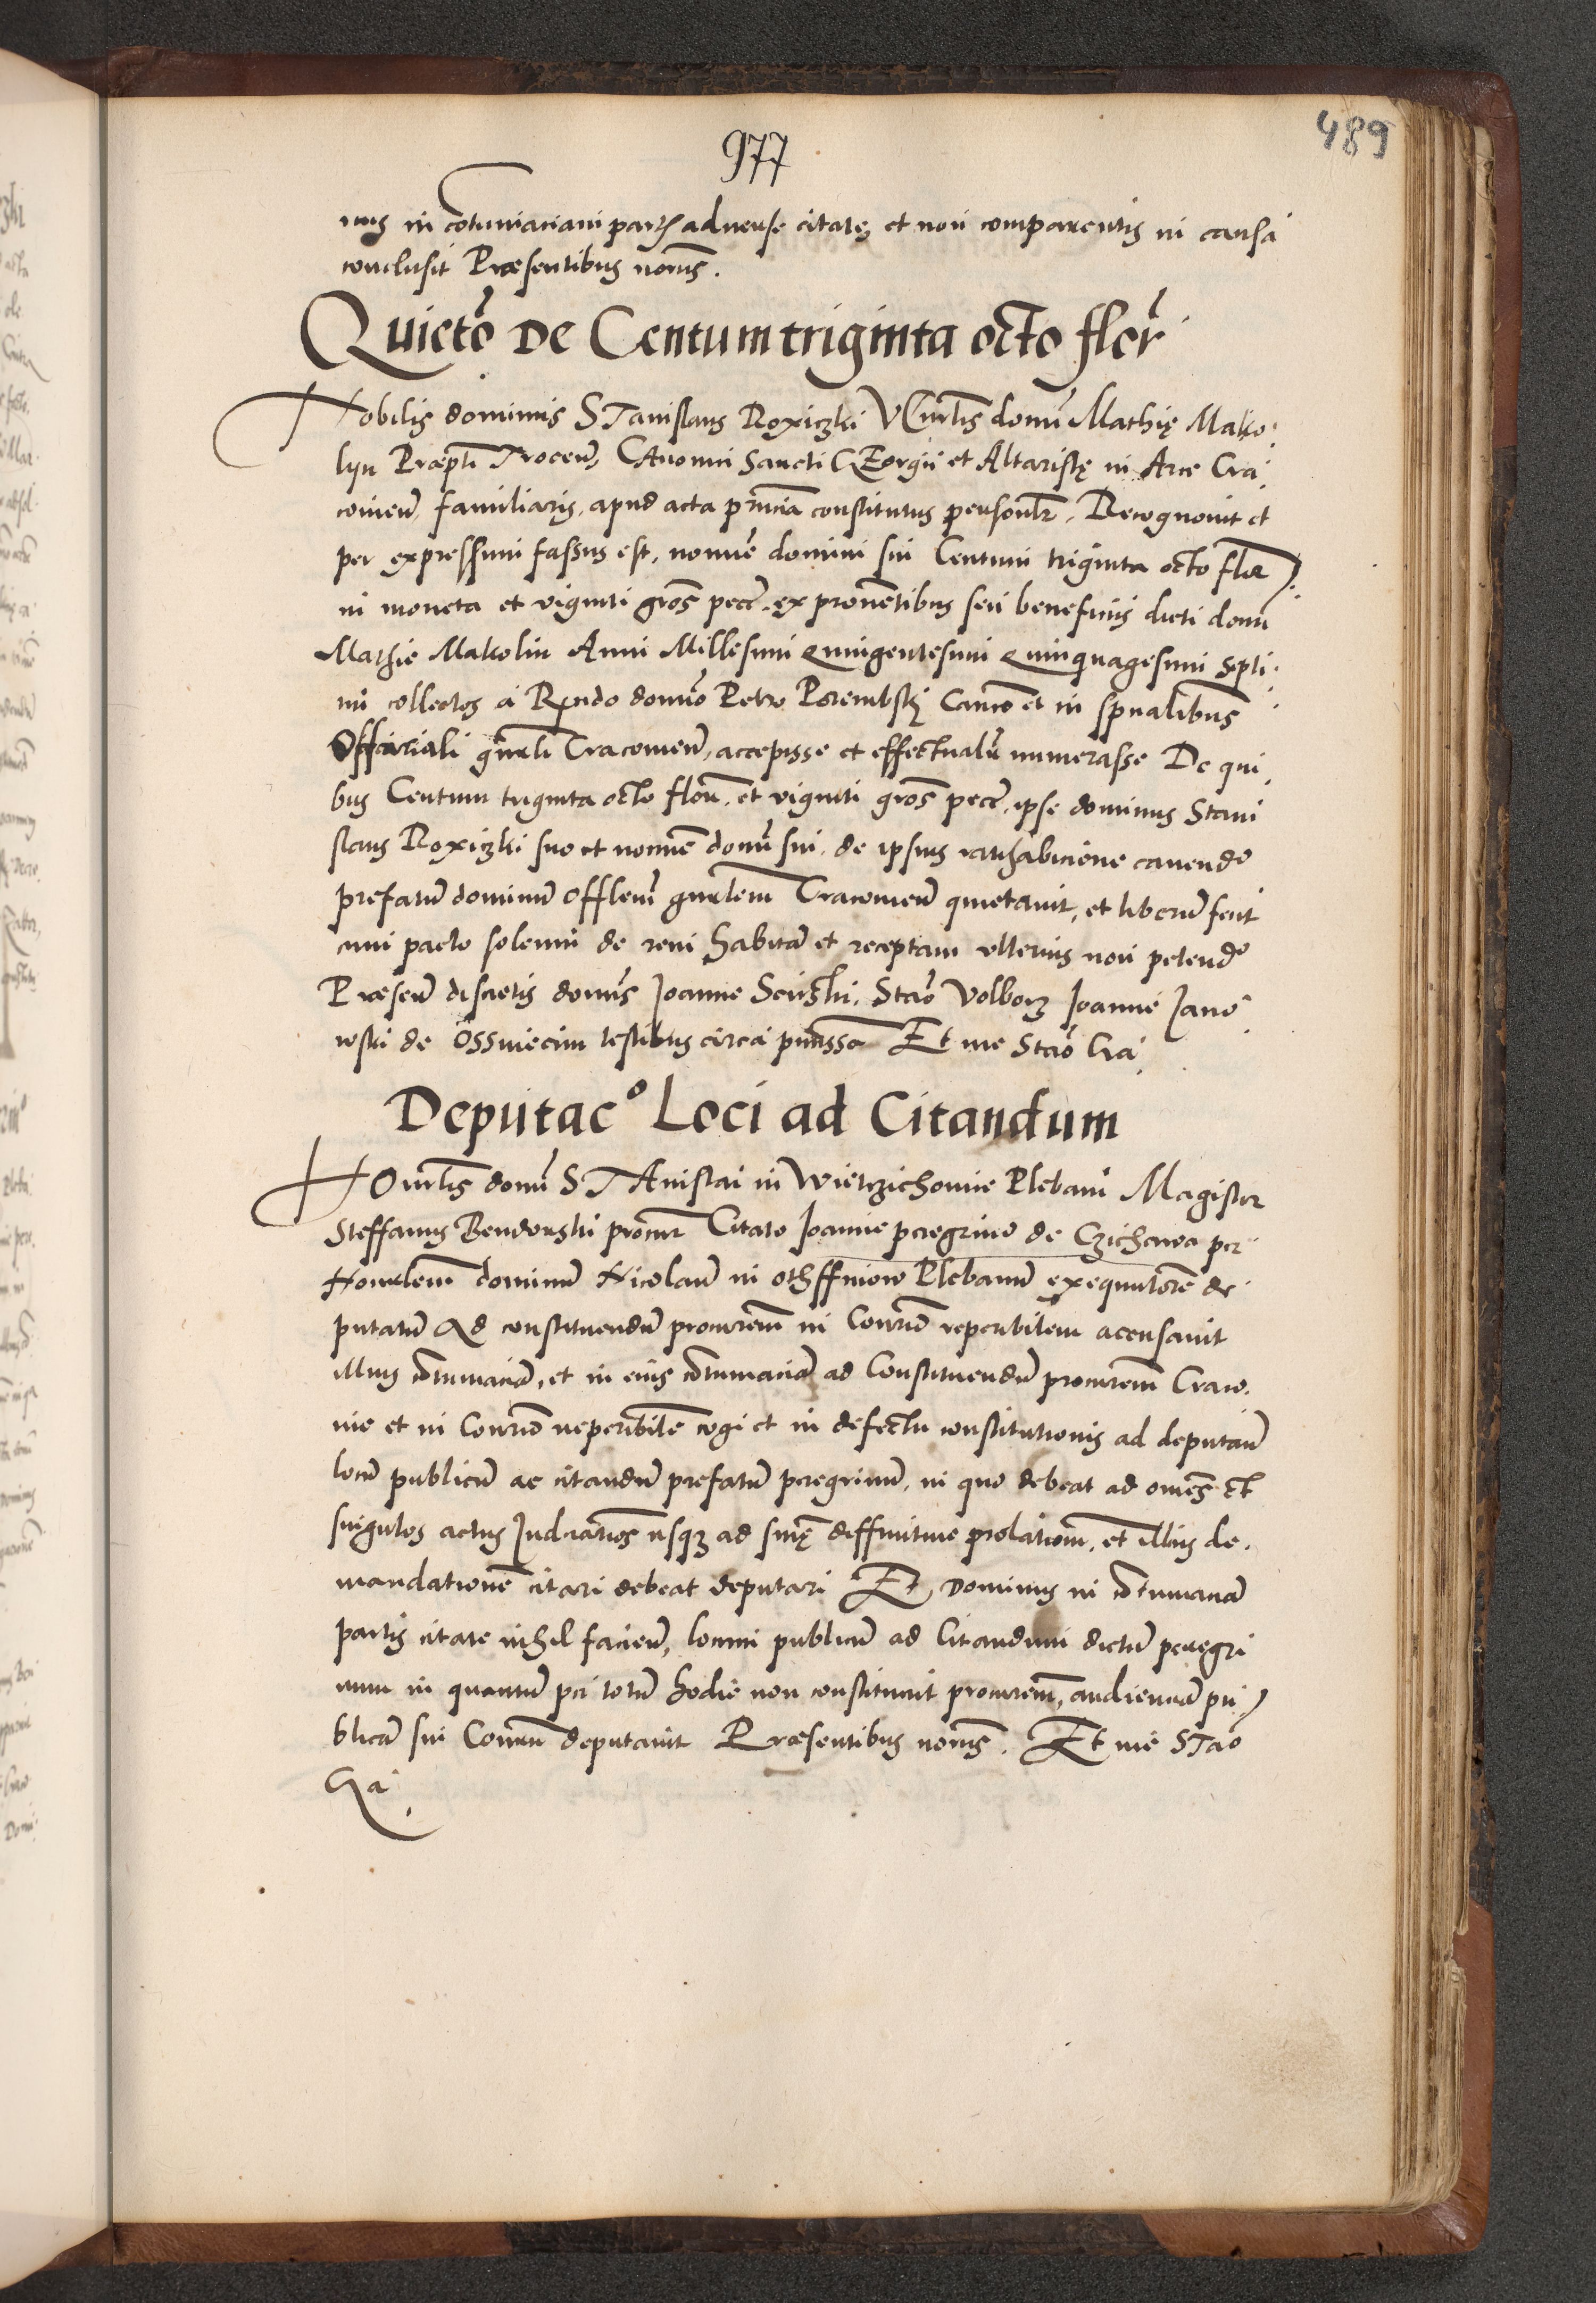 489
977
nus in cotumaciam partis aduerse citate et non comparentis in causa
conclusit Præsentibus norus.
Quietō De Centum triginta octo flor
Nobilis dominus STanislaus Roxiczki Vnrlis domī Mathię Mako
lyn Præpti Trocen, CAnonici Sancti GEorgii et Altaristę in Arce Cra
couien, familiaris, apud acta pnncia constitutus personlr. Recognouit et
per expressum fassus est, nomīe domini sui Centum triginta octo flor
in moneta et viginti gros pecc. ex prouentibus seu beneficiis dicti domī
Mathie Makolin Anni Millesimi Quingentesimi Quinquagesimi Septi
mi collectos a Rndo domīo Petro Porembski Canco et in spualibus
Officiali gnrali Cracouien, accepisse et effectualr numerasse De qui
bus Centum triginta octo florn. et viginti gros pecc. ipse dominus Stani
slaus Roxiczki suo et nomīe domī sui. de ipsius ratihabicione cauendo
prefatū dominū Offlem gnrlem Cracouien quietauit, et liberū fecit
cum pacto solemni de rem habitā et receptam vlterius non petendo
Præsen discretis domīs Joanne Sciiski. Stāo Volborz Joanne Jano
wski de Osswiecim testibus circa pmissa Et me Stāo Cra
Deputac° Loci ad Citandum
HOnrlis domī STAnislai in Wietrzichowie Plebani Magister
Steffanus Bendonski procur Citato Joanne peregrino de Czichawa per
Honrlem dominū Nicolaū in othffinow Plebanum exequutorē de
putatū Ad constituendū procurem in Conrio reperibilem acensauit
illius cōtumaciā, et in eius cōtumaciā ad Constituendū procurem Craco
uie et in Conrio reperibilē cogi et in defectu constitutionis ad deputatū
locū publicū ac citandū prefatū peregrinū, in quo debeat ad omēs et
singulos actus Judiciarios usqz ad snię diffinitiue prolationem, et illius de
mandationē citari debeat deputari Et Dominus in cōtumaciā
partis citate nihil facien, locum publicū ad Citandum dictū peregri
num in quantū per totū hodie non constituerit procurem, audienciā pu
blicā sui Conrii deputauit Præsentibus norus. Et me STāo
Gra